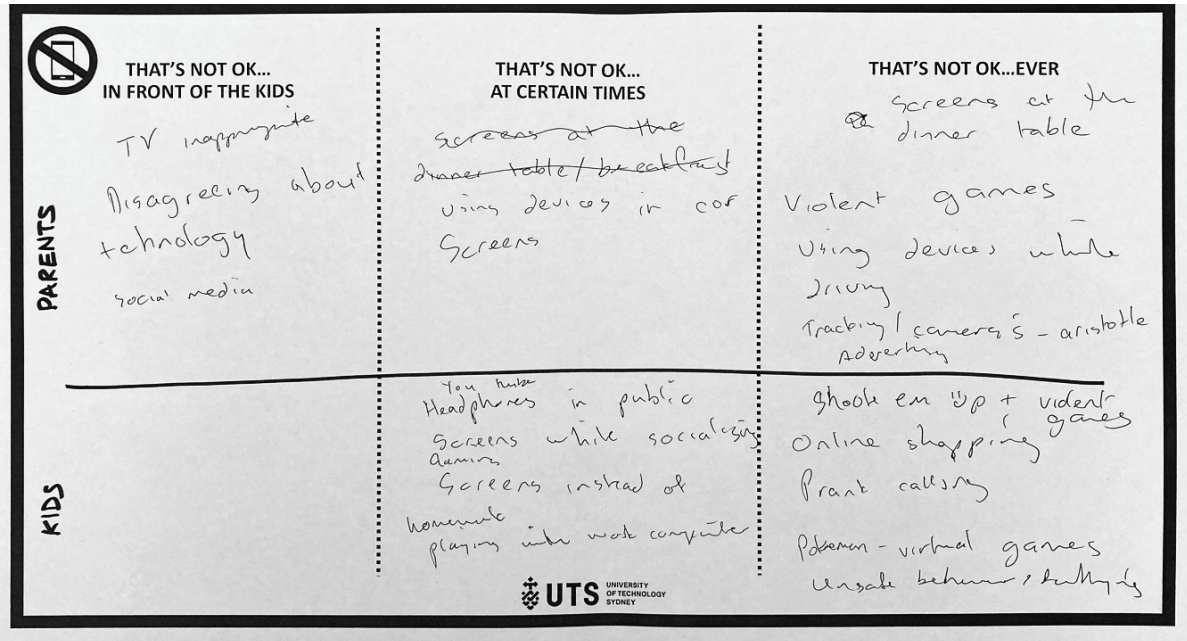 THAT'S NOT OK...
IN FRONT OF THE KIDS
THAT'S NOT OK...
AT CERTAIN TIMES
THAT'S NOT OK...EVER
PARENTS
TV inappropriate
Disagreeing about
technology
social media
screens at the
dinner table/breakfast
using devices in
Screens
Screens at the
dinner table
Violent games
Using devices while
driving
Tracking/camera's - aristotle
Advertising
KIDS
You tube
Headphones in public
Screens while socializing
Gaming
Screens instead of
homework
playing with work computer
Shoot em Up + violent
games
Online shopping
Prank calling
Pokemon - virtual games
unsafe behaviour, bullying
UTS
UNIVERSITY
OF TECHNOLOGY
SYDNEY